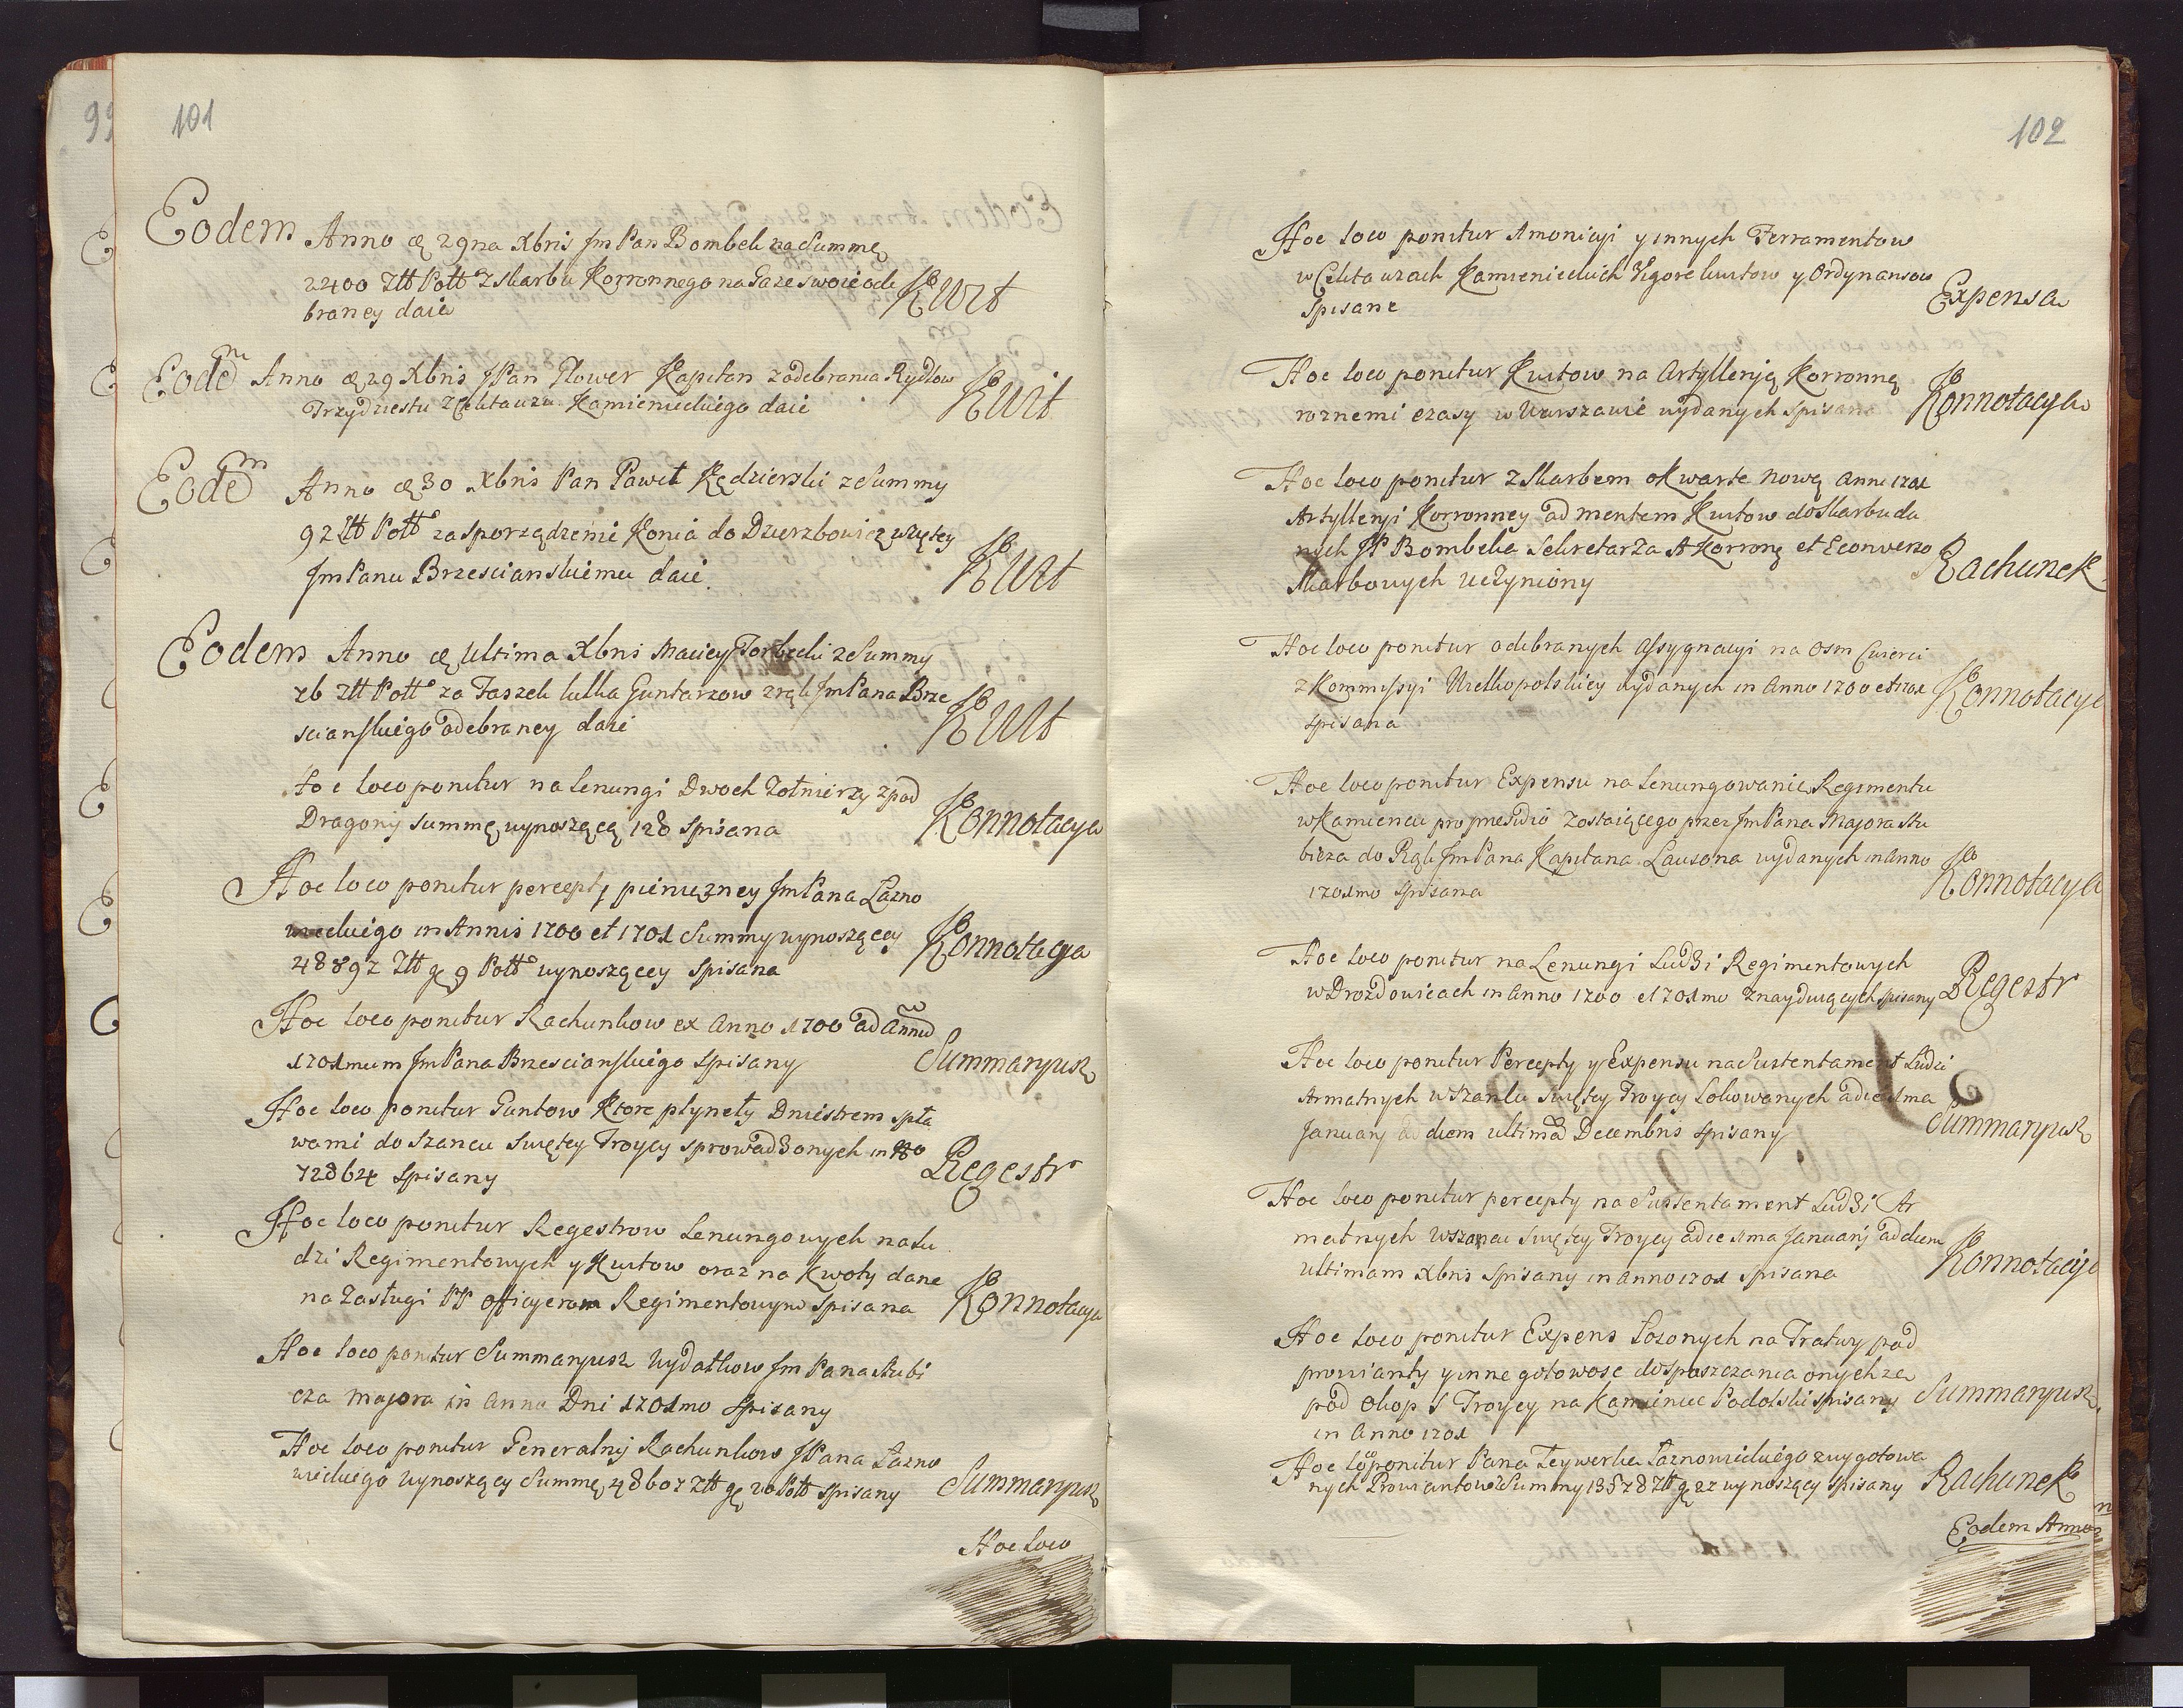 99
101
Eodem Anno d 29na Xbris Jm Pan Bombek na Summę
2400 Ztt Poll Z Skarbu Korronnego na Gaze swoie ode
braney daie Kwit
Eodem Anno d 29 Xbris JPan Glower Kapitan z odebrania Rydlow
Trzydziestu z Cekhauzu Kamienieckiego daie Kwit
Eodem Anno d 30 Xbris Pan Paweł Kędzierski z Summy
92 Ztt Poll za sporządzenie Konia do Dzierzbowic wziętey
Jm Panu Brzescianskiemu daie Kwit
Eodem Anno d Ultima Xbris Maciey Torbecki z Summy
26 Ztt Poll za Faszek kilka Guntarzow z rąk Jm Pana Brze
scianskiego odebraney daie Kwit
Hoc loco ponitur na Lenungi Dwoch Zołnierzy zpod
Dragonij summę wynoszącą 128 spisana Konnotacya
Hoc loco ponitur percepty pienięzney Jm Pana Łazno
wieckiego in Annis 1700 et 1701 Summy wynoszącey
48892 Ztt g 9 Poll wynoszącey spisana Konnotacya
Hoc loco ponitur Rachunkow ex Anno 1700 ad Annum
1701mum Jm Pana Brzescianskiego spisany Summaryusz
Hoc loco ponitur Guntow Ktore płynęły Dniestrem spła
wami do Szancu Swiętey Troycy sprowadzonych in No
728624 spisany Regestr
Hoc loco ponitur Regestrow Lenungowych na Lu
dzi Regimentowych y Kwitow oraz na Kwoty dane
na Zasługi PP Officyerom Regimentowym spisana Konnotacya
Hoc loco ponitur Summaryusz Wydatkow Jm Pana Stubi
cza Majora in Anno Dni 1701mo spisany
Hoc loco ponitur Generalny Rachunkow JPana Łazno
wieckiego wynoszący Summę 48607 Ztt g 20 Poll spisany Summaryusz
Hoc loco
102
Hoc loco ponitur Amonicyi y innych Ferramentow
w Cekhauzach Kamienieckich Vigore kwitow y Ordynansow
spisane Expensa
Hoc loco ponitur Kwitow na Artylleryą Korronną
roznemi czasy w Warszawie wydanych spisana Konnotacya
Hoc loco ponitur z Skarbem o Kwarte Nową Anni 1701
Artylleryi Korronney ad mentem Kwitow do Skarbu da
nych JP Bombeka Sekretarza A Korronę et Econverso
Skarbowych uczyniony Rachunek
Hoc loco ponitur odebranych Assygnacyi na Osm Cwierci
z Kommissyi Wielkopolskiey wydanych in Anno 1700 et 1701
spisana Konnotacya
Hoc loco ponitur Expensu na Lenungowanie Regimentu
w Kamiencu pro presidio Zostaiącego przez Jm Pana Majora Stu
bicza do Rąk Jm Pana Kapitana Lausona wydanych in Anno
1701mo spisana Konnotacya
Hoc loco ponitur na Lenungi Ludzi Regimentowych
w Drozdowicach in Anno 1700 et 701mo Znayduiących spisany Regestr
Hoc loco ponitur Percepty y Expensu na Sustentament Ludzi
Armatnych w Szancu Swiętey Troycy Lokowanych a die 1ma
Januarij ad diem ultimam Decembris spisany Summaryusz
Hoc loco ponitur percepty na Sustentament Ludzi Ar
matnych w Szancu Swiętey Troycy a die 1ma Januarij ad diem
ultimam Xbris spisany in Anno 1701 spisana Konnotacya
Hoc loco ponitur Expens Łozonych na Tratwy pod
prowianty y inne gotowosc do spuszczania onychze
pod Okop S Troycy na Kamieniec Podolski spisany Summaryusz
in Anno 1701
Hoc loco ponitur Pana Feywerka Łaznowieckiego z wygotowa
nych Prowiantow Summy 13578 Ztt g 27 wynoszący spisany Rachunek
Eodem Anno